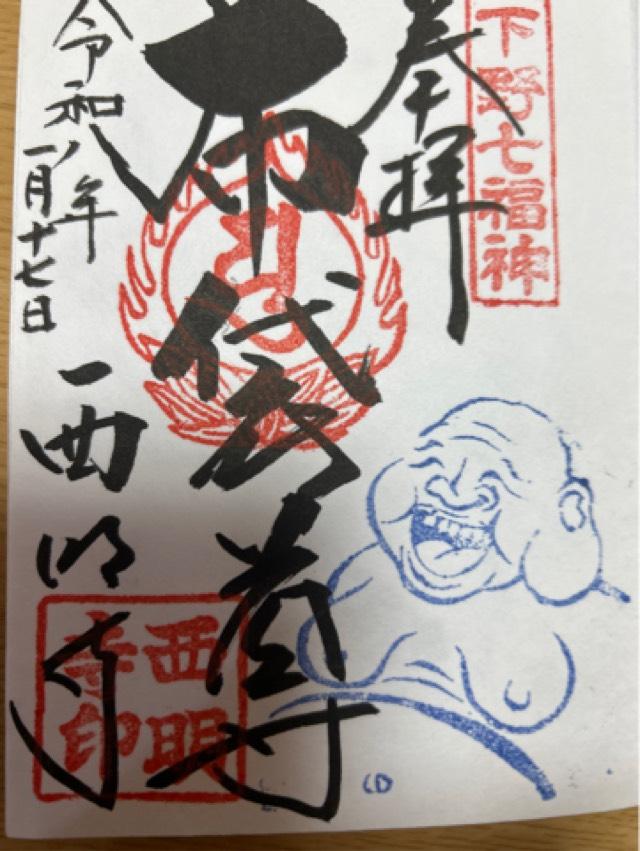 下野七福神
奉拝
布袋尊
令和八年
一月十七日
西明寺
西明
寺印